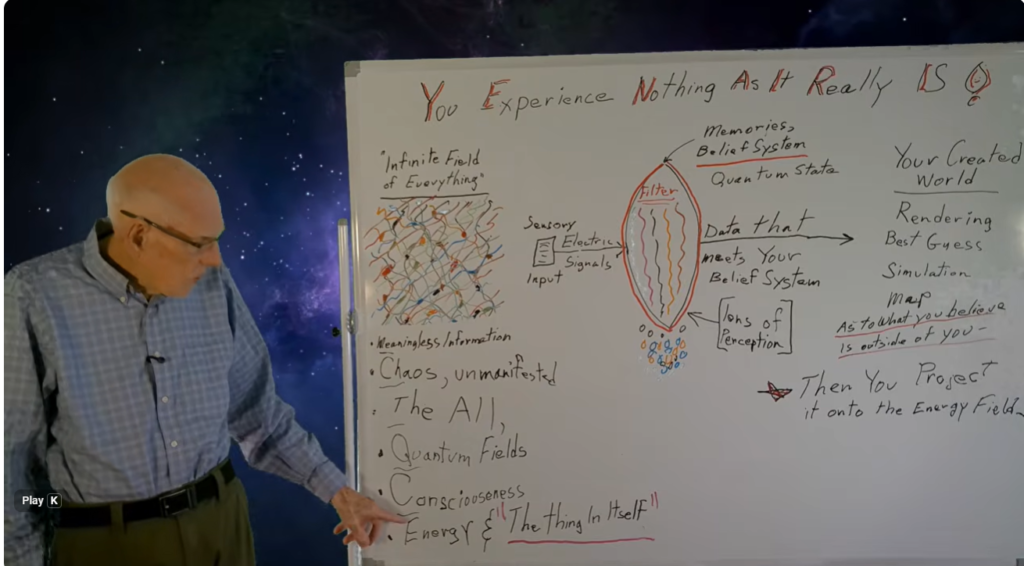 You Experience Nothing As It Really IS
"Infinite Field
of Everything"
• Meaningless Information
• Chaos, unmanifested
• The All,
• Quantum Fields
• Consciooseness
• Energy & "The thing In Itself"
Sensory
Input
Electric
Signals
Filter
Memories,
Belief System
Quantum State
Data that
meets Your
Belief System
Ions of
Perception
Your Created
World
Rendering
Best Guess
Simulation
Map
As to what you believe
is outside of you -
Then You Project
it onto the Energy Field
Play K